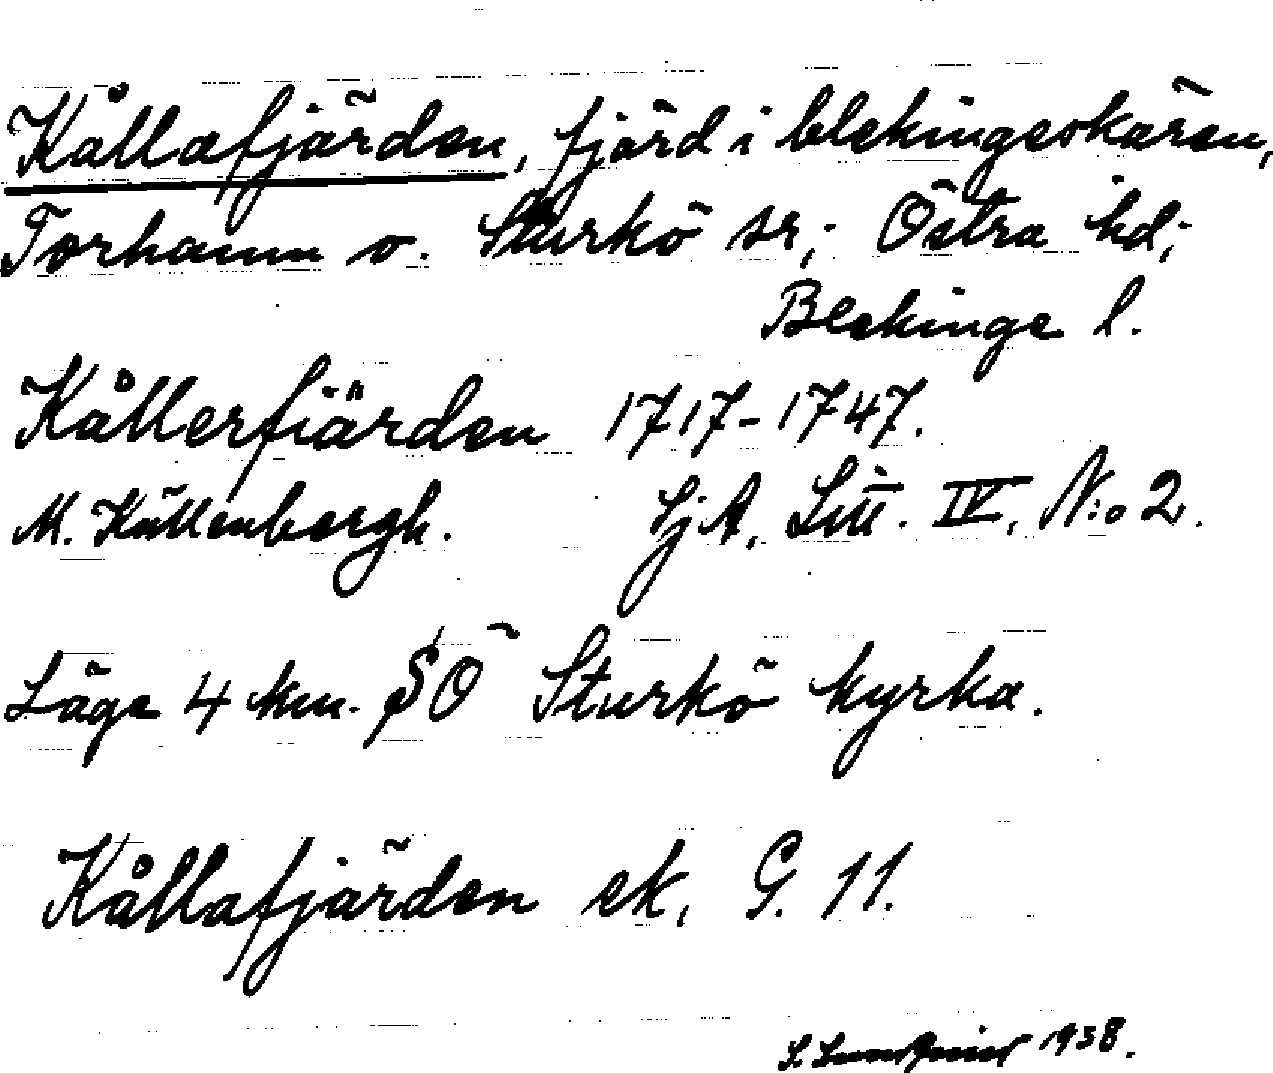 Kållafjärden, fjärd i blekingeskären,
Torhamn o. Sturkö sr; Östra hd;
Blekinge l.
Kållerfiärden 1717-1747.
M. Källenbergh. SjA, Litt. IV, N:o 2.
Läge 4 km. SÖ Sturkö kyrka.
Kållafjärden ek. G. 11.
1938.